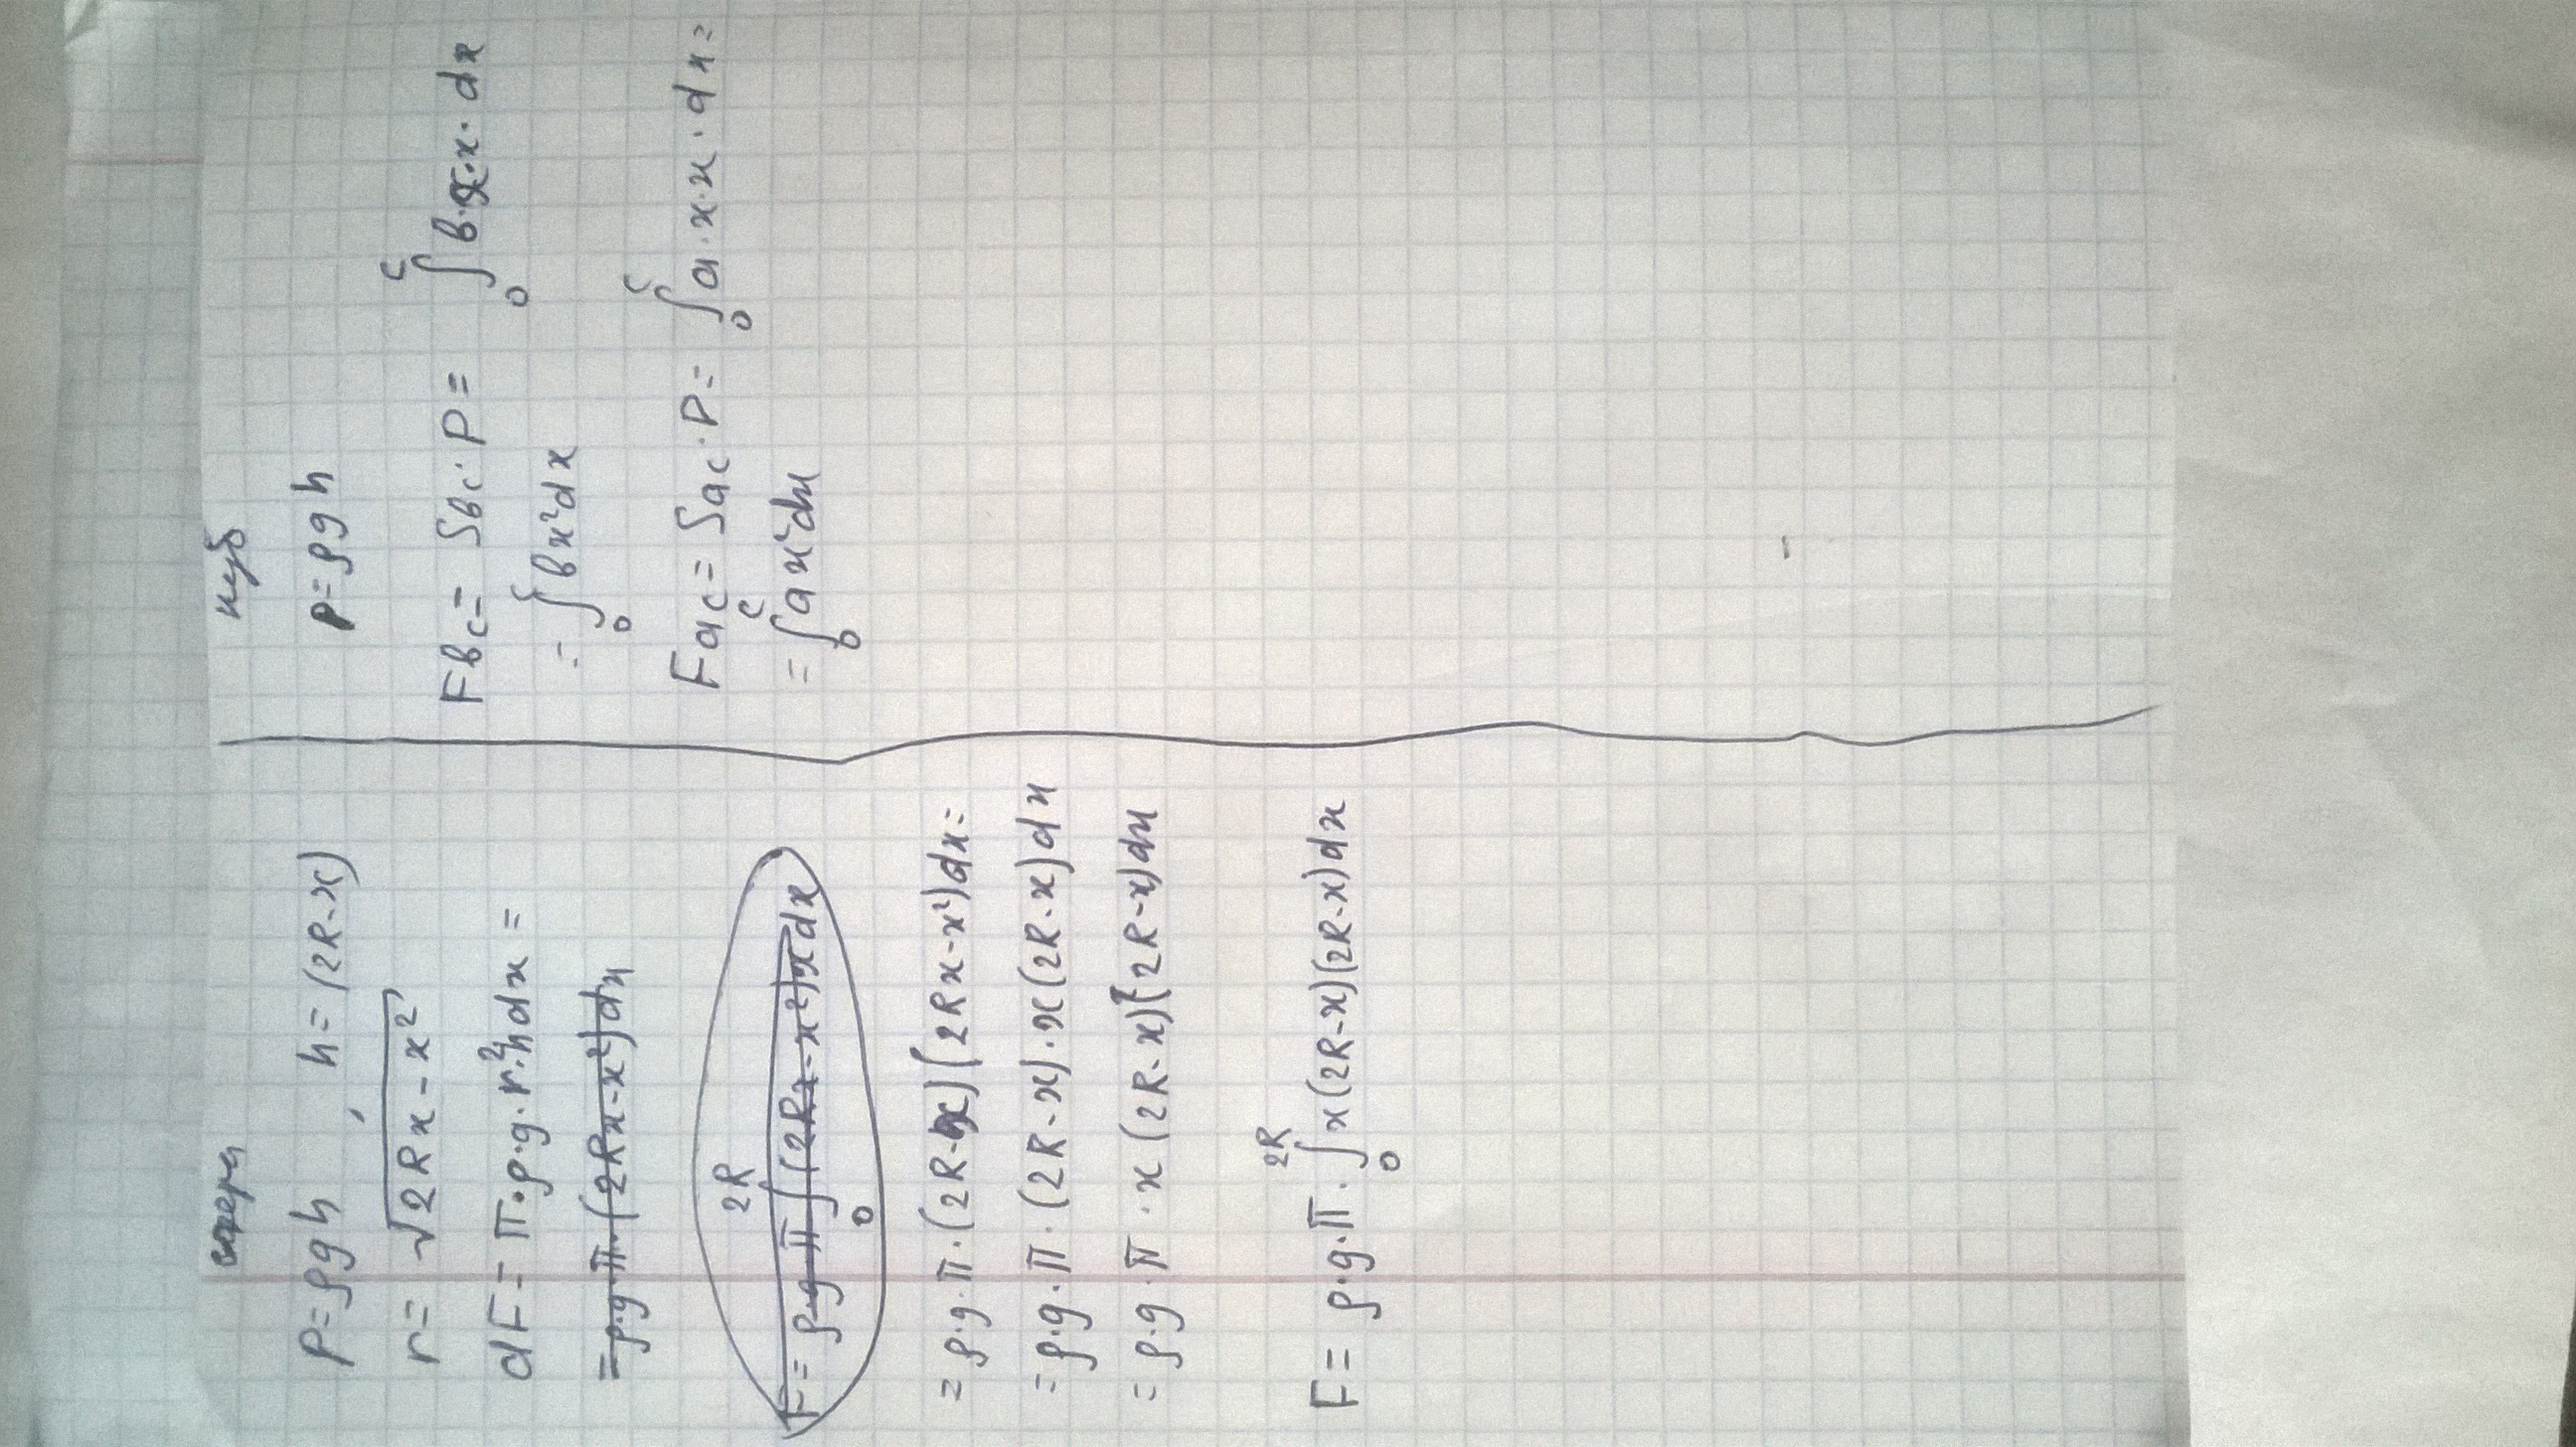 сфера
p=ρgh , h=(2R-x)
r= √(2Rx-x²)
dF= π·ρ·g·r²·h dx =
=ρ·g·π·(2Rx-x²)dx
F= ρ·g·π ∫₀²ᴿ (2Rx-x²)x dx
= ρ·g·π·(2R-x)(2Rx-x²)dx=
=ρ·g·π·(2R-x)·x(2R-x)dx
= ρ·g·π·x(2R-x)(2R-x)dx
F= ρ·g·π·∫₀²ᴿ x(2R-x)(2R-x)dx
куб
p=ρgh
Fbc= Sbc·P= ∫₀ᶜ b·x·x·dx
= ∫₀ᶜ bx²dx
Fac= Sac·P= ∫₀ᶜ a·x·x·dx=
= ∫₀ᶜ ax²dx